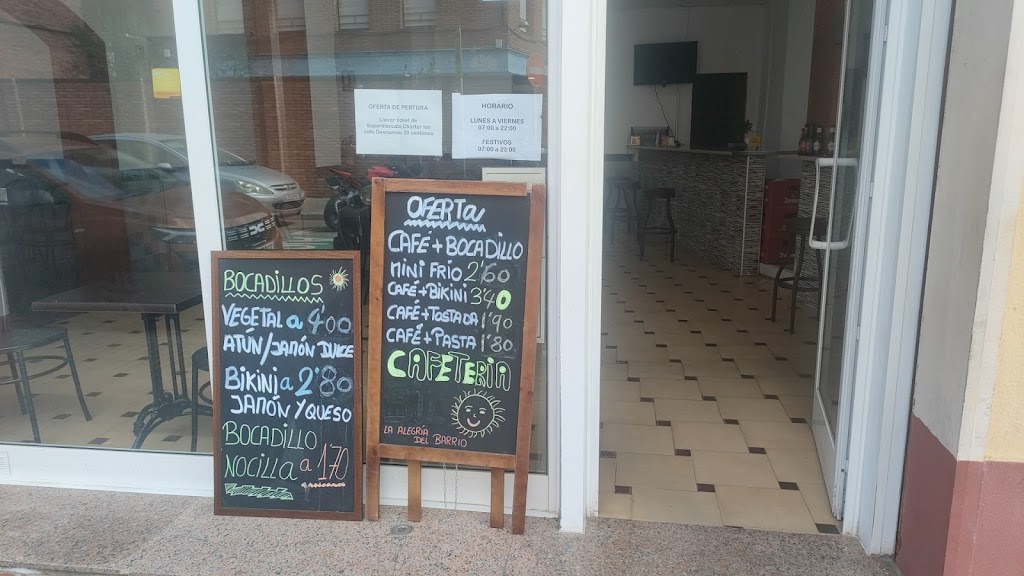 OFERTA DE PERTURA
Llevar ticket de
Supermercado Charter los
cafe Descuento 30 centimos
HORARIO
LUNES A VIERNES
07:00 a 22:00
FESTIVOS
07:00 a 23:00
OFERTA
CAFÉ + BOCADILLO
MINI FRIO 2'60
CAFÉ + BIKINI 3'40
CAFÉ + TOSTADA 1'90
CAFÉ + PASTA 1'80
CAFETERIA
LA ALEGRÍA
DEL BARRIO
BOCADILLOS
VEGETAL a 4'00
ATÚN/JAMÓN DULCE
BIKINI a 2'80
JAMÓN Y QUESO
BOCADILLO
NOCILLA a 1'70